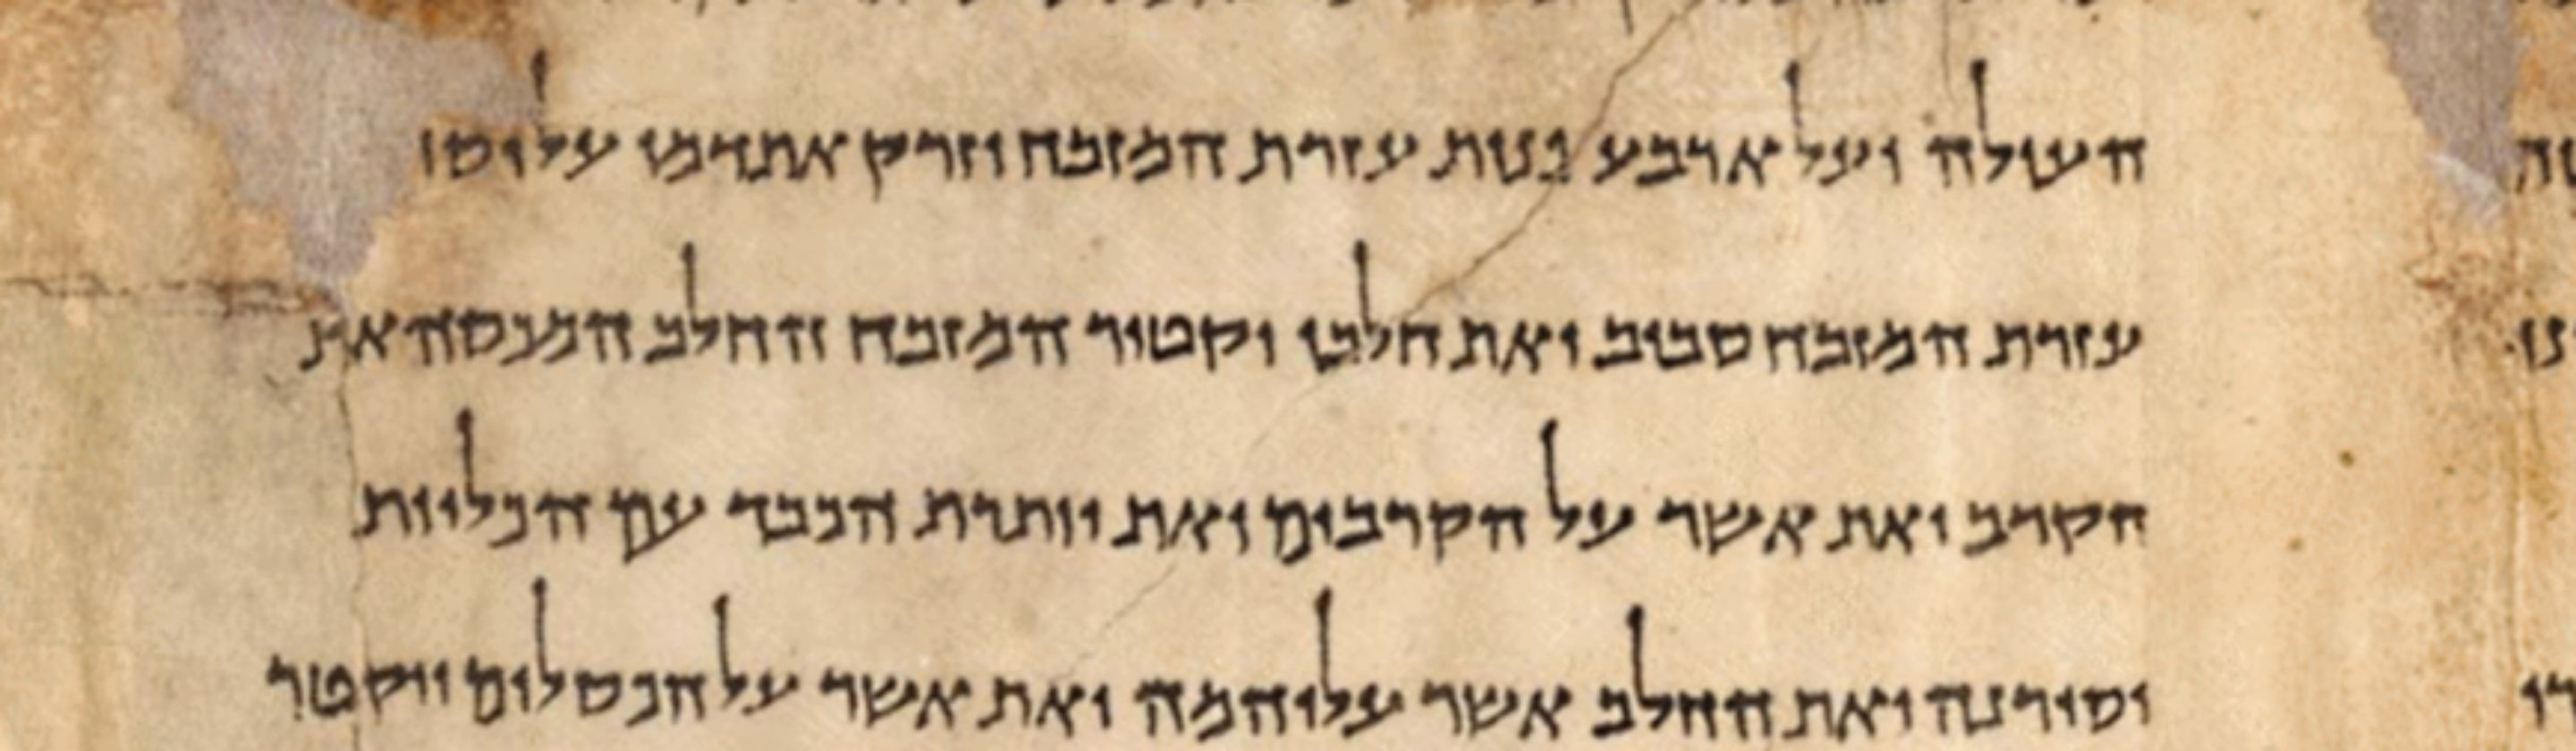 העולה ועל ארבע פנות עזרת המזבח וזרק את דמו על יסו
עזרת המזבח סביב ואת חלבו יקטיר המזבח והחלב המכסה את
הקרב ואת אשר על הקרבים ואת יותרת הכבד עם הכליות
יסירנה ואת החלב אשר עליהמה ואת אשר על הכסלים ויקטר